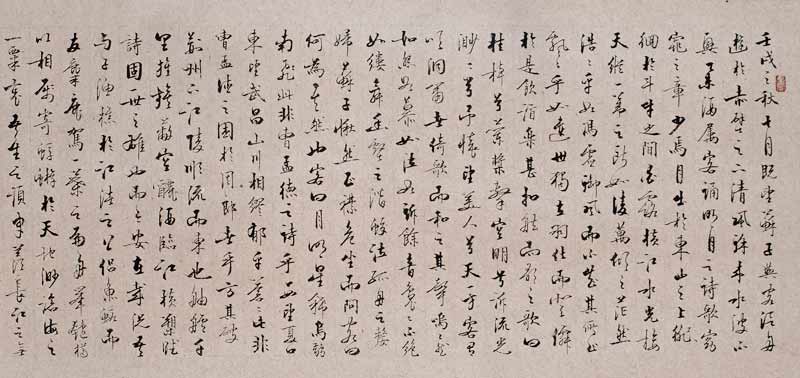 壬戌之秋七月既望蘇子與客泛舟
遊於赤壁之下清風徐來水波不
興舉酒屬客誦明月之詩歌窈
窕之章少焉月出於東山之上徘
徊於斗牛之間白露橫江水光接
天縱一葦之所如凌萬頃之茫然
浩浩乎如馮虛御風而不知其所止
飄飄乎如遺世獨立羽化而登僊
於是飲酒樂甚扣舷而歌之歌曰
桂棹兮蘭槳擊空明兮泝流光
渺渺兮予懷望美人兮天一方客有
吹洞簫者倚歌而和之其聲嗚嗚然
如怨如慕如泣如訴餘音裊裊不絕
如縷舞幽壑之潛蛟泣孤舟之嫠
婦蘇子愀然正襟危坐而問客曰
何為其然也客曰月明星稀烏鵲
南飛此非曹孟德之詩乎西望夏口
東望武昌山川相繆鬱乎蒼蒼此非
曹孟德之困於周郎者乎方其破
荊州下江陵順流而東也舳艫千
里旌旗蔽空釃酒臨江橫槊賦
詩固一世之雄也而今安在哉況吾
與子漁樵於江渚之上侶魚蝦而
友麋鹿駕一葉之扁舟舉匏樽
以相屬寄蜉蝣於天地渺滄海之
一粟哀吾生之須臾羨長江之無